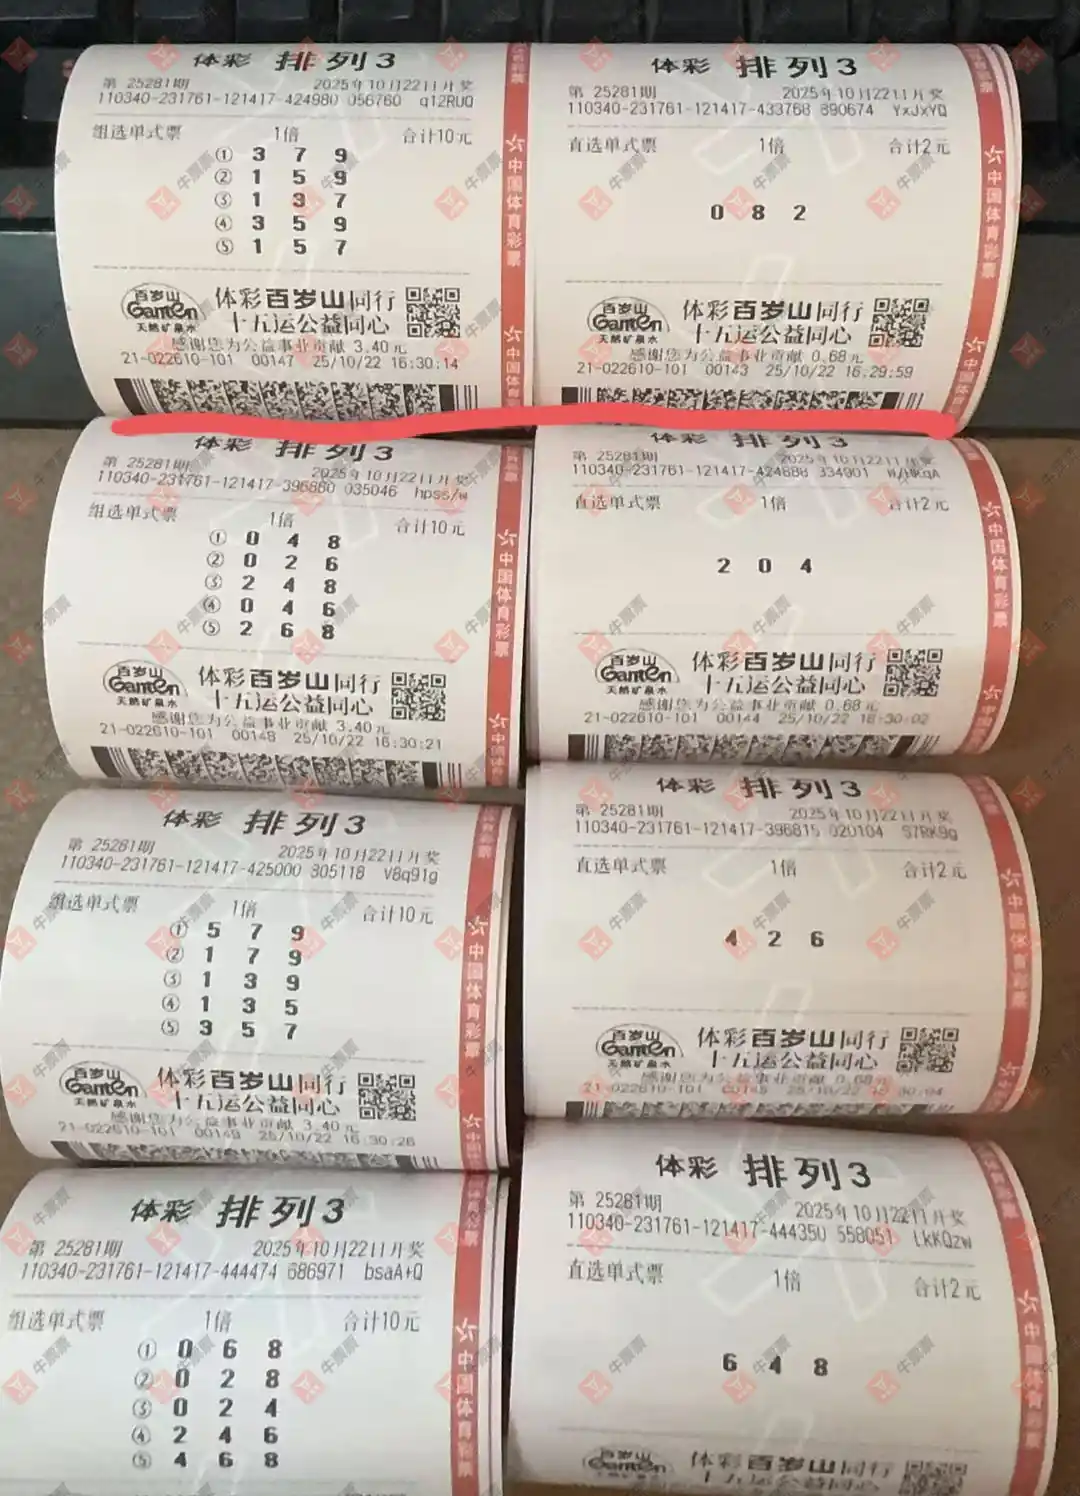 体彩 排列3
第 25281期 2025年10月22日开奖
110340-231761-121417-424980 056760 q12RUQ
组选单式票 1倍 合计10元
① 3 7 9
② 1 5 9
③ 1 3 7
④ 3 5 9
⑤ 1 5 7
百岁山
Ganten
天然矿泉水
体彩百岁山同行
十五运公益同心
感谢您为公益事业贡献 3.40元
21-022610-101 00147 25/10/22 16:30:14
中国体育彩票
体彩 排列3
第 25281期 2025年10月22日开奖
110340-231761-121417-433768 890674 YxJxYQ
直选单式票 1倍 合计2元
0 8 2
百岁山
Ganten
天然矿泉水
体彩百岁山同行
十五运公益同心
感谢您为公益事业贡献 0.68元
21-022610-101 00143 25/10/22 16:29:59
中国体育彩票
体彩 排列3
第 25281期 2025年10月22日开奖
110340-231761-121417-396860 035046 hpss/w
组选单式票 1倍 合计10元
① 0 4 8
② 0 2 6
③ 2 4 8
④ 0 4 6
⑤ 2 6 8
百岁山
Ganten
天然矿泉水
体彩百岁山同行
十五运公益同心
感谢您为公益事业贡献 3.40元
21-022610-101 00148 25/10/22 16:30:21
中国体育彩票
体彩 排列3
第 25281期 2025年10月22日开奖
110340-231761-121417-424888 334901
直选单式票 1倍 合计2元
2 0 4
百岁山
Ganten
天然矿泉水
体彩百岁山同行
十五运公益同心
感谢您为公益事业贡献 0.68元
21-022610-101 00144 25/10/22 16:30:02
中国体育彩票
体彩 排列3
第 25281期 2025年10月22日开奖
110340-231761-121417-425000 805118 V8q91g
组选单式票 1倍 合计10元
① 5 7 9
② 1 7 9
③ 1 3 9
④ 1 3 5
⑤ 3 5 7
百岁山
Ganten
天然矿泉水
体彩百岁山同行
十五运公益同心
感谢您为公益事业贡献 3.40元
21-022610-101 00149 25/10/22 16:30:26
中国体育彩票
体彩 排列3
第 25281期 2025年10月22日开奖
110340-231761-121417-396815 020104 S7RK9g
直选单式票 1倍 合计2元
4 2 6
百岁山
Ganten
天然矿泉水
体彩百岁山同行
十五运公益同心
感谢您为公益事业贡献 0.68元
21-022610-101 00145 25/10/22 30:04
中国体育彩票
体彩 排列3
第 25281期 2025年10月22日开奖
110340-231761-121417-444474 686971 bsaA+Q
组选单式票 1倍 合计10元
① 0 6 8
② 0 2 8
③ 0 2 4
④ 2 4 6
⑤ 4 6 8
中国体育彩票
体彩 排列3
第 25281期 2025年10月22日开奖
110340-231761-121417-444350 558051 LkKQzw
直选单式票 1倍 合计2元
6 4 8
百岁山
Ganten
体彩百岁山同行
十五运公益同心
中国体育彩票
牛票票